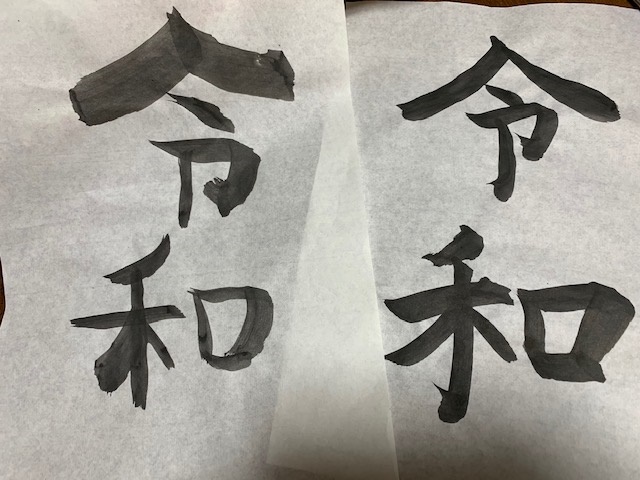 令和
令和